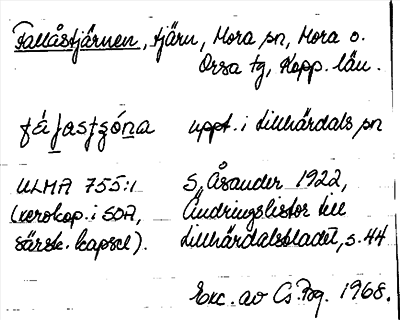 Fallåstjärnen, tjärn, Mora sn, Mora o.
Orsa tg, Kopp. län.
fáḷastjọ́ṇa uppt. i Lillhärdals sn
ULMA 755:1 S. Åsander 1922,
(xerokop. i SOA, Ändringslistor till
särsk. kapsel). Lillhärdalsbladet, s. 44
Exc. av Cs. Bg. 1968.